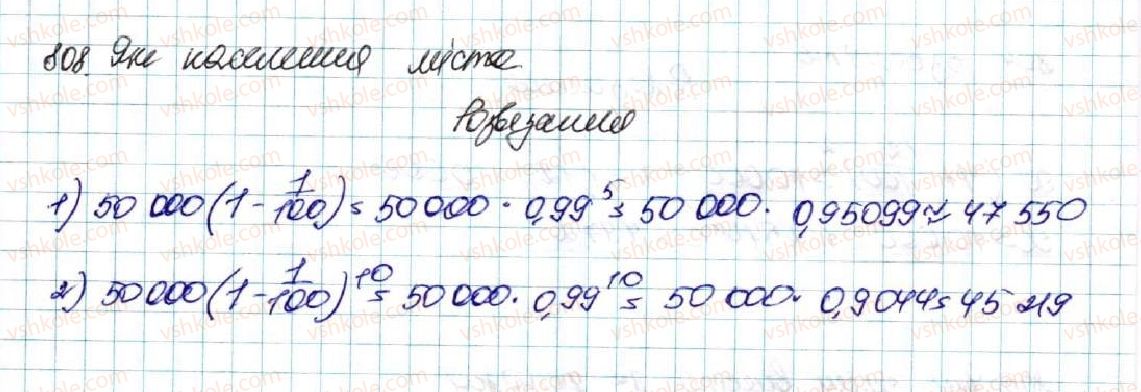 808. Яке населення міста
Розв'язання
1) 50 000 (1 - 1/100) = 50 000 · 0,99^5 = 50 000 · 0,95099 ≈ 47 550
2) 50 000 (1 - 1/100)^10 = 50 000 · 0,99^10 = 50 000 · 0,9044 = 45 219